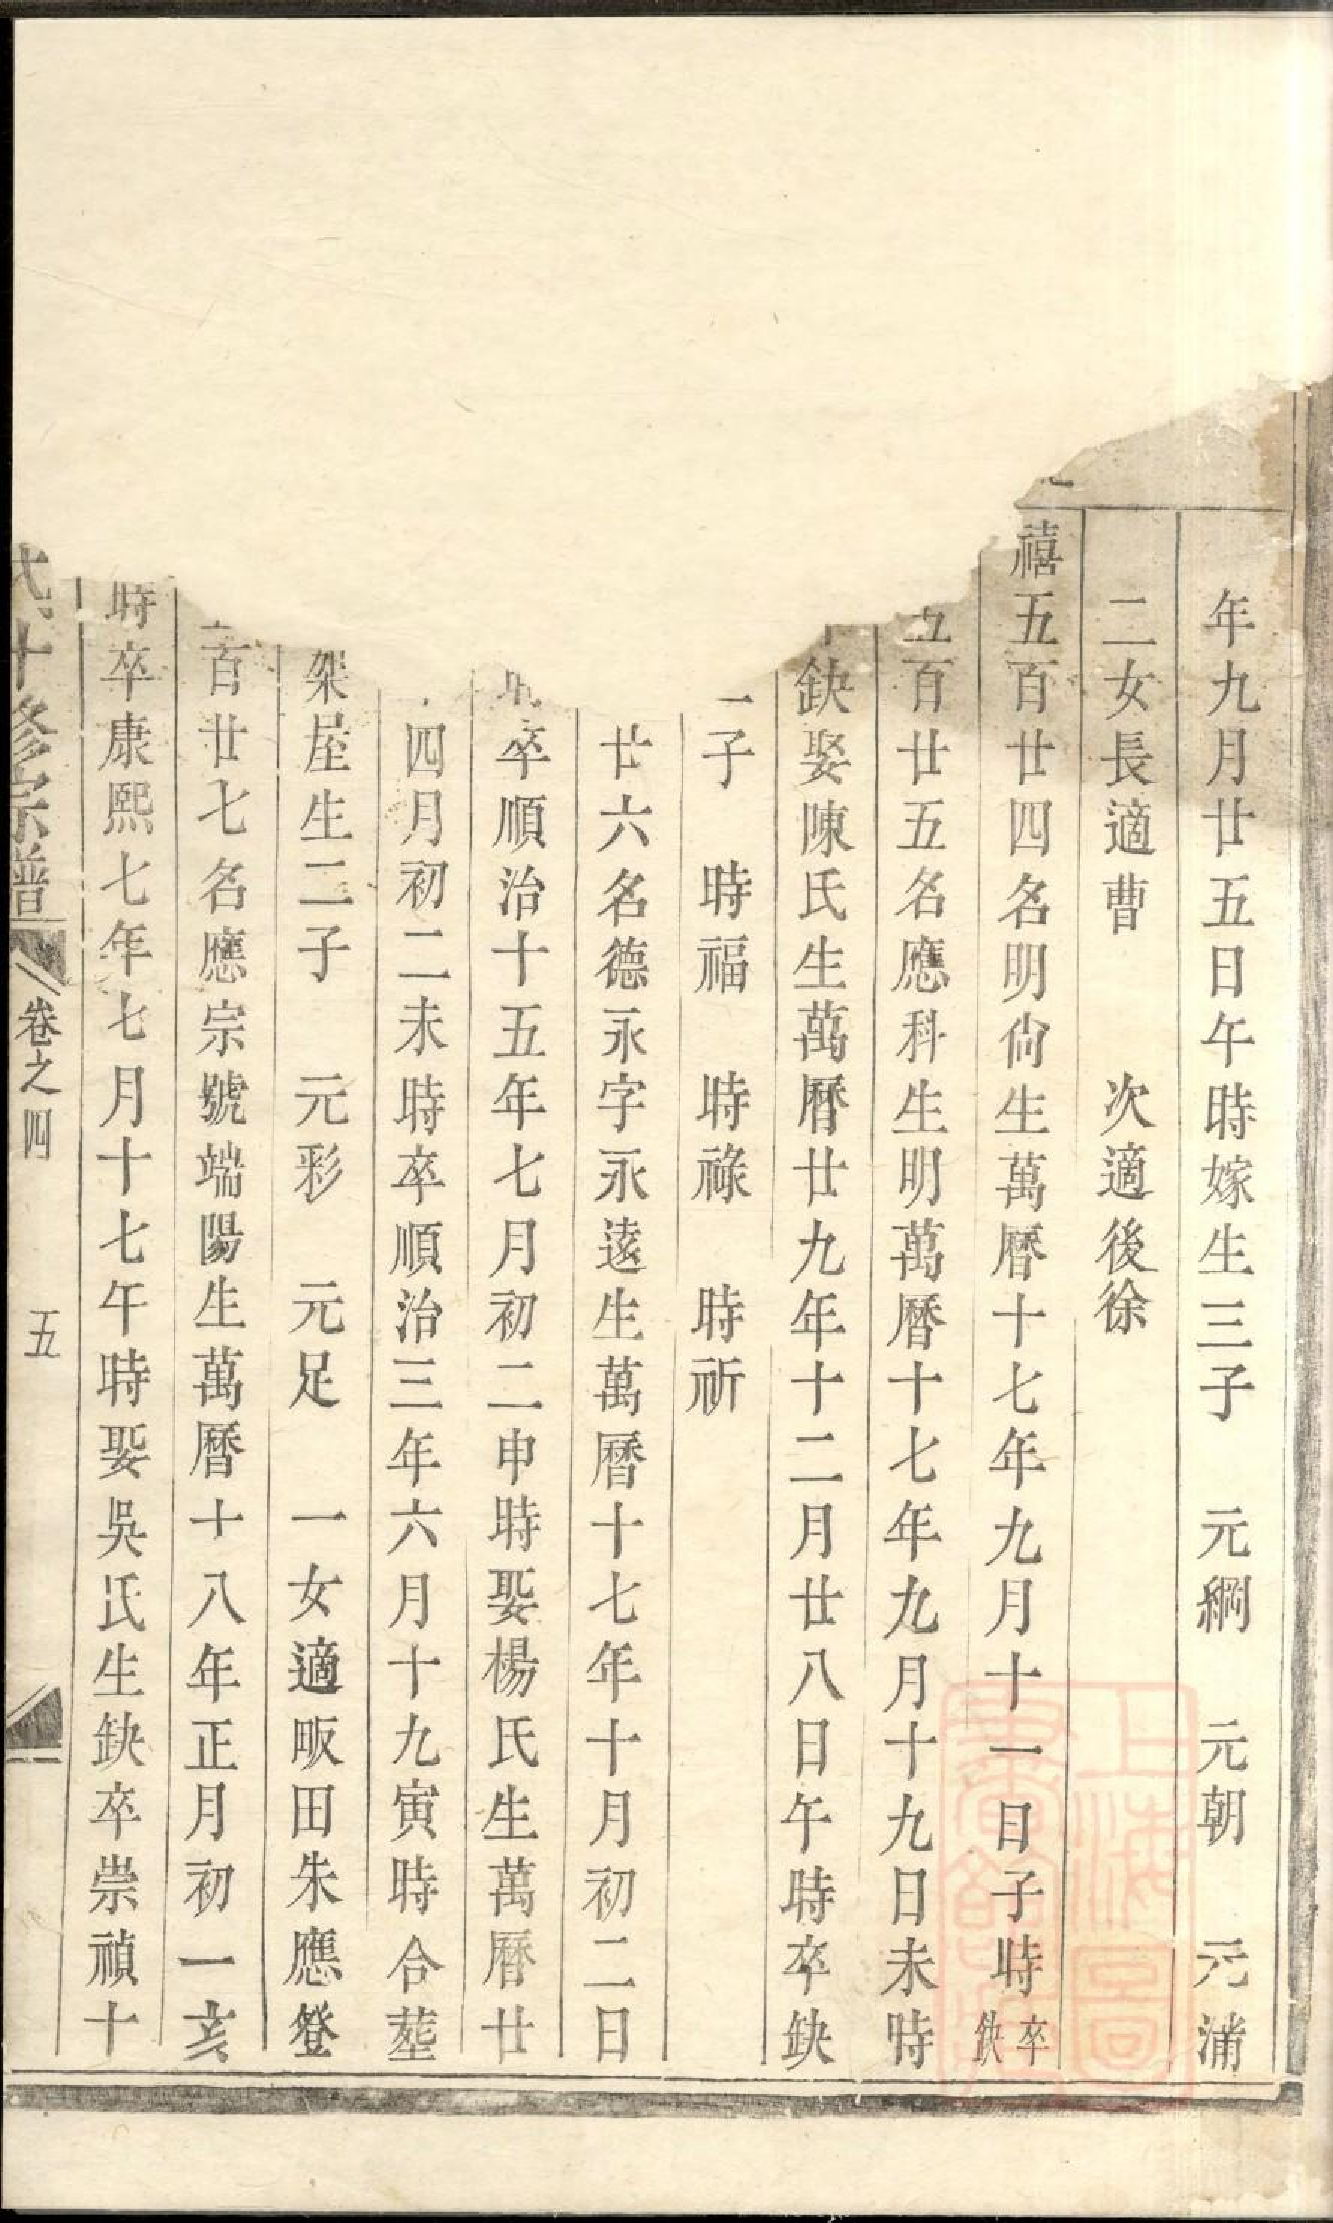 年九月廿五日午時嫁生三子　元綱　元朝　元浦
二女長適曹　次適後徐
禧五百廿四名明尙生萬曆十七年九月十一日子時卒缺
五百廿五名應科生明萬曆十七年九月十九日未時
缺娶陳氏生萬曆廿九年十二月廿八日午時卒缺
子　時福　時祿　時祈
廿六名德永字永遠生萬曆十七年十月初二日
卒順治十五年七月初二申時娶楊氏生萬曆廿
四月初二未時卒順治三年六月十九寅時合塟
架屋生二子　元彩　元足　一女適畈田朱應登
百廿七名應宗號端陽生萬曆十八年正月初一亥
時卒康熙七年七月十七午時娶吳氏生缺卒崇禎十
氏十修宗譜　卷之四　五
上海圖書館藏